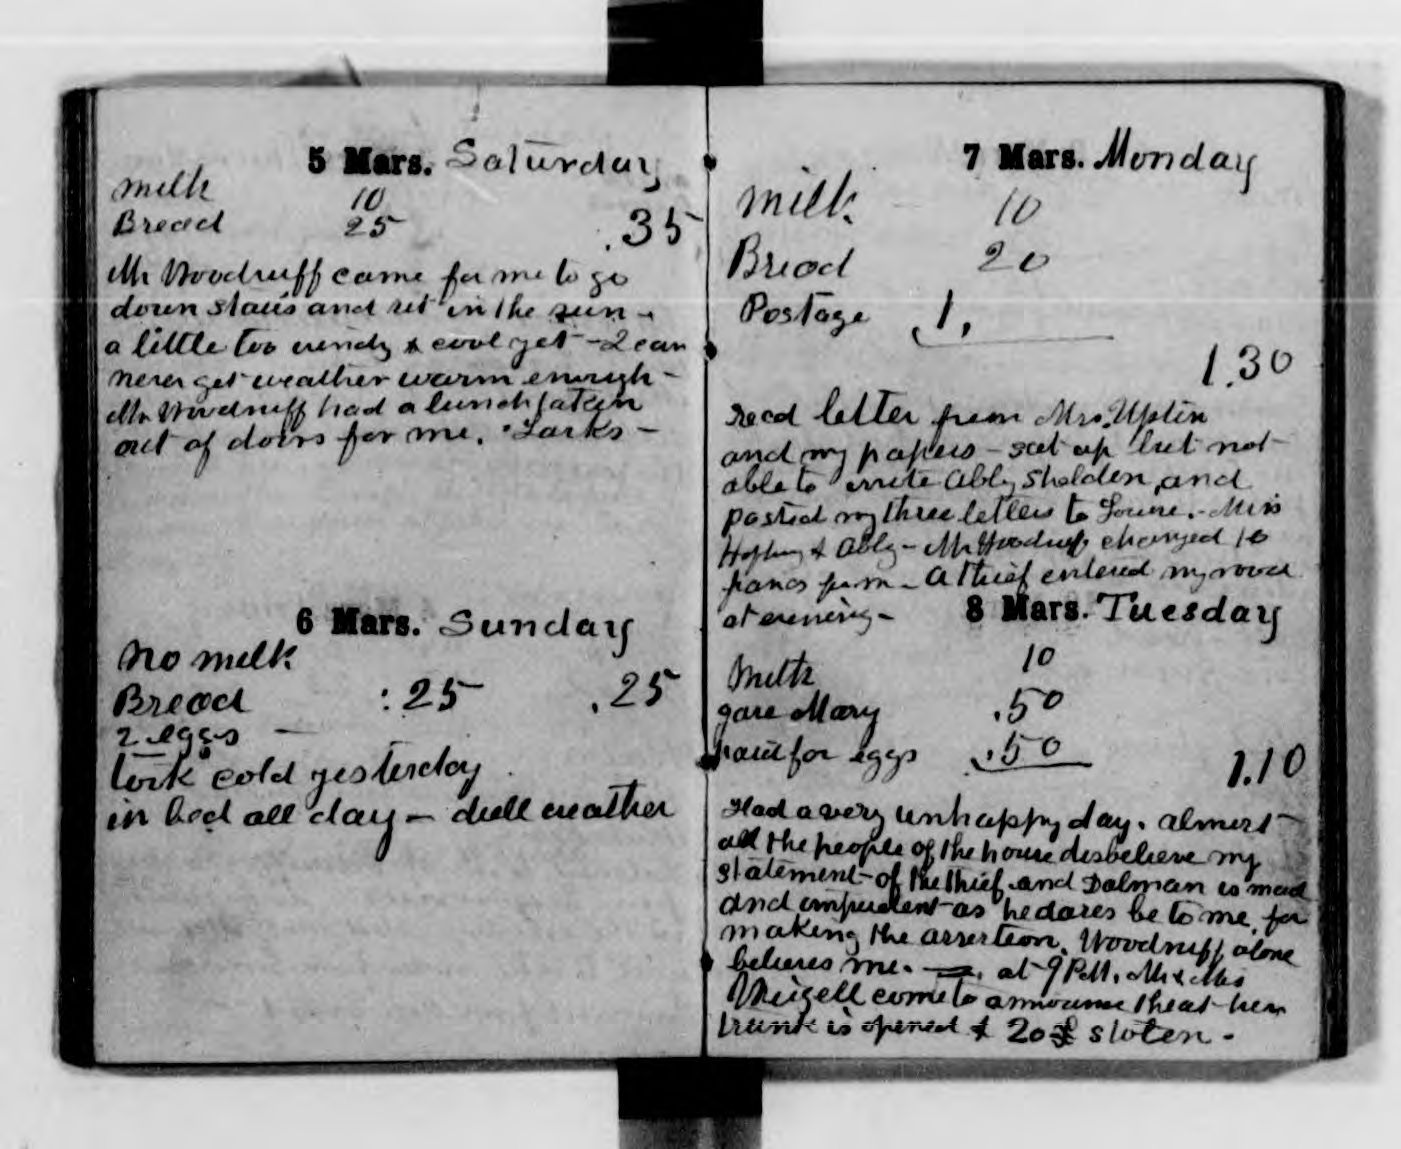 5 Mars. Saturday
Milk 10
Bread 25 .35
Mr Woodruff came for me to go
down stairs and sit in the sun -
a little too windy & cool yet - I can
never get weather warm enough -
Mr Woodruff had a lunch taken
out of doors for me. Larks -
6 Mars. Sunday
No milk
Bread :25 .25
2 eggs -
took cold yesterday
in bed all day - dull weather
7 Mars. Monday
Milk 10
Bread 20
Postage 1.
1.30
recd letter from Mrs. Upton
and my papers - sat up but not
able to write Abby Sheldon, and
posted my three letters to Louise. - Miss
& Abby - Mr Woodruff changed 10
francs for me - A thief entered my room
at evening -
8 Mars. Tuesday
Milk 10
gave Mary .50
paid for eggs .50 1.10
Had a very unhappy day. almost
all the people of the house disbelieve my
statement of the thief and Dalman is mad
and impudent as he dares be to me, for
making the assertion. Woodruff alone
believes me. - at 9 P.M. Mr & Mrs
come to announce that her
trunk is opened & 20 £ stolen -